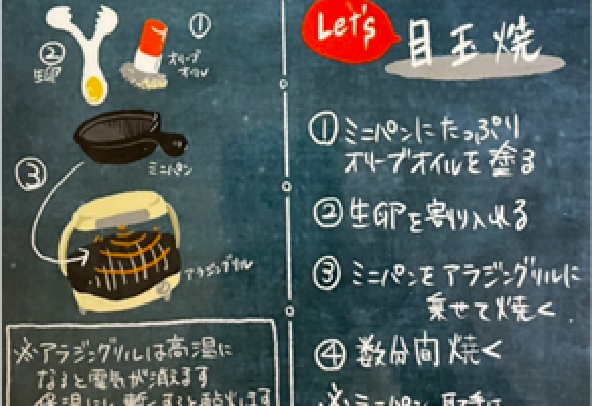 ①
オリーブ
オイル
②
生卵
ミニパン
③
アラジングリル
※アラジングリルは高温に
なると電気が消えます
Let's
目玉焼
①ミニパンにたっぷり
オリーブオイルを塗る
②生卵を割り入れる
③ミニパンをアラジングリルに
乗せて焼く
④数分間焼く
※ミニパン